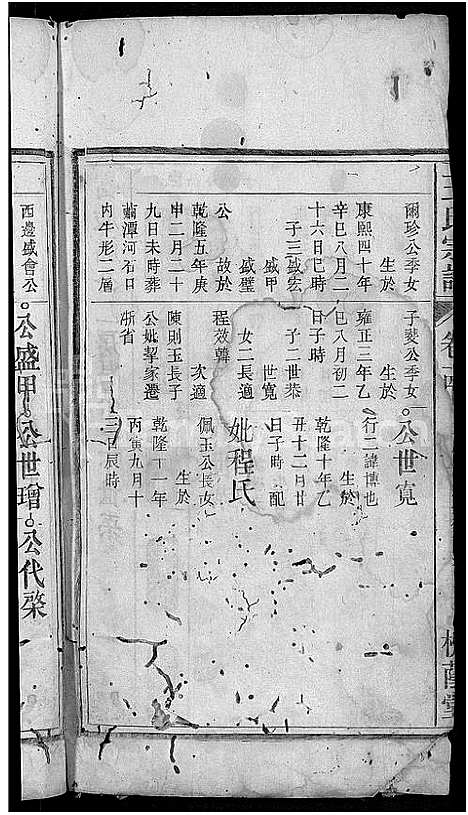 王氏宗譜
爾珍公季女
生於
康熙四十年
辛巳八月二
十六日巳時
子三盛宏
盛甲
盛璧
公 故於
乾隆五年庚
申二月二十
九日未時葬
繭潭河石口
内牛形二層
子燮公季女
生於
雍正三年乙
巳八月初二
日子時
子二世恭
世寬
女二長適
程效韓
次適
陳則玉長子
公妣挈家遷
浙省
公世寬
行二諱博也
生於
乾隆十年乙
丑十二月廿
日子時 配
妣程氏
佩玉公長女
生於
乾隆十一年
丙寅九月十
三日辰時
西邊盛會公
公盛甲公世璔公代棨